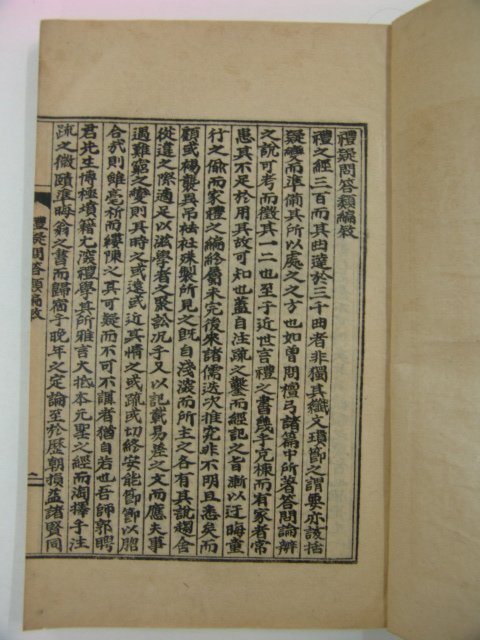 禮疑問答類編敘
禮之經三百而其曲達於三千曲者非獨其纖文瑣節之謂要亦該括
疑變而準備其所以處之之方也如曾問檀弓諸篇中所著答問論辨
之說可考而徵其一二也至于近世言禮之書幾乎充棟而有家者常
患其不足於用其故可知也蓋自注疏之鑿而經記之旨漸以迂晦童
行之偷而家禮之編終爵未完復來諸儒迭次推究非不明且悉矣而
顧或裼襲異吊祛社殊製所見之既自淺深而所主之各有其說趨舍
從違之際適足以滋學者之聚訟況乎又以記載易差之文而應夫事
遇難窮之變則其時之或遠或近其情之或疏或切終安能節節以脗
合哉則雖毫析而縷陳之其可疑而不可不講者猶自若也吾師郭聘
君先生博極墳籍尤深禮學其所雅言大抵本元聖之經而淘擇乎注
疏之微賾準晦翁之書而歸宿于晚年之定論至於歷朝損益諸賢同
禮疑問答類編敘
一